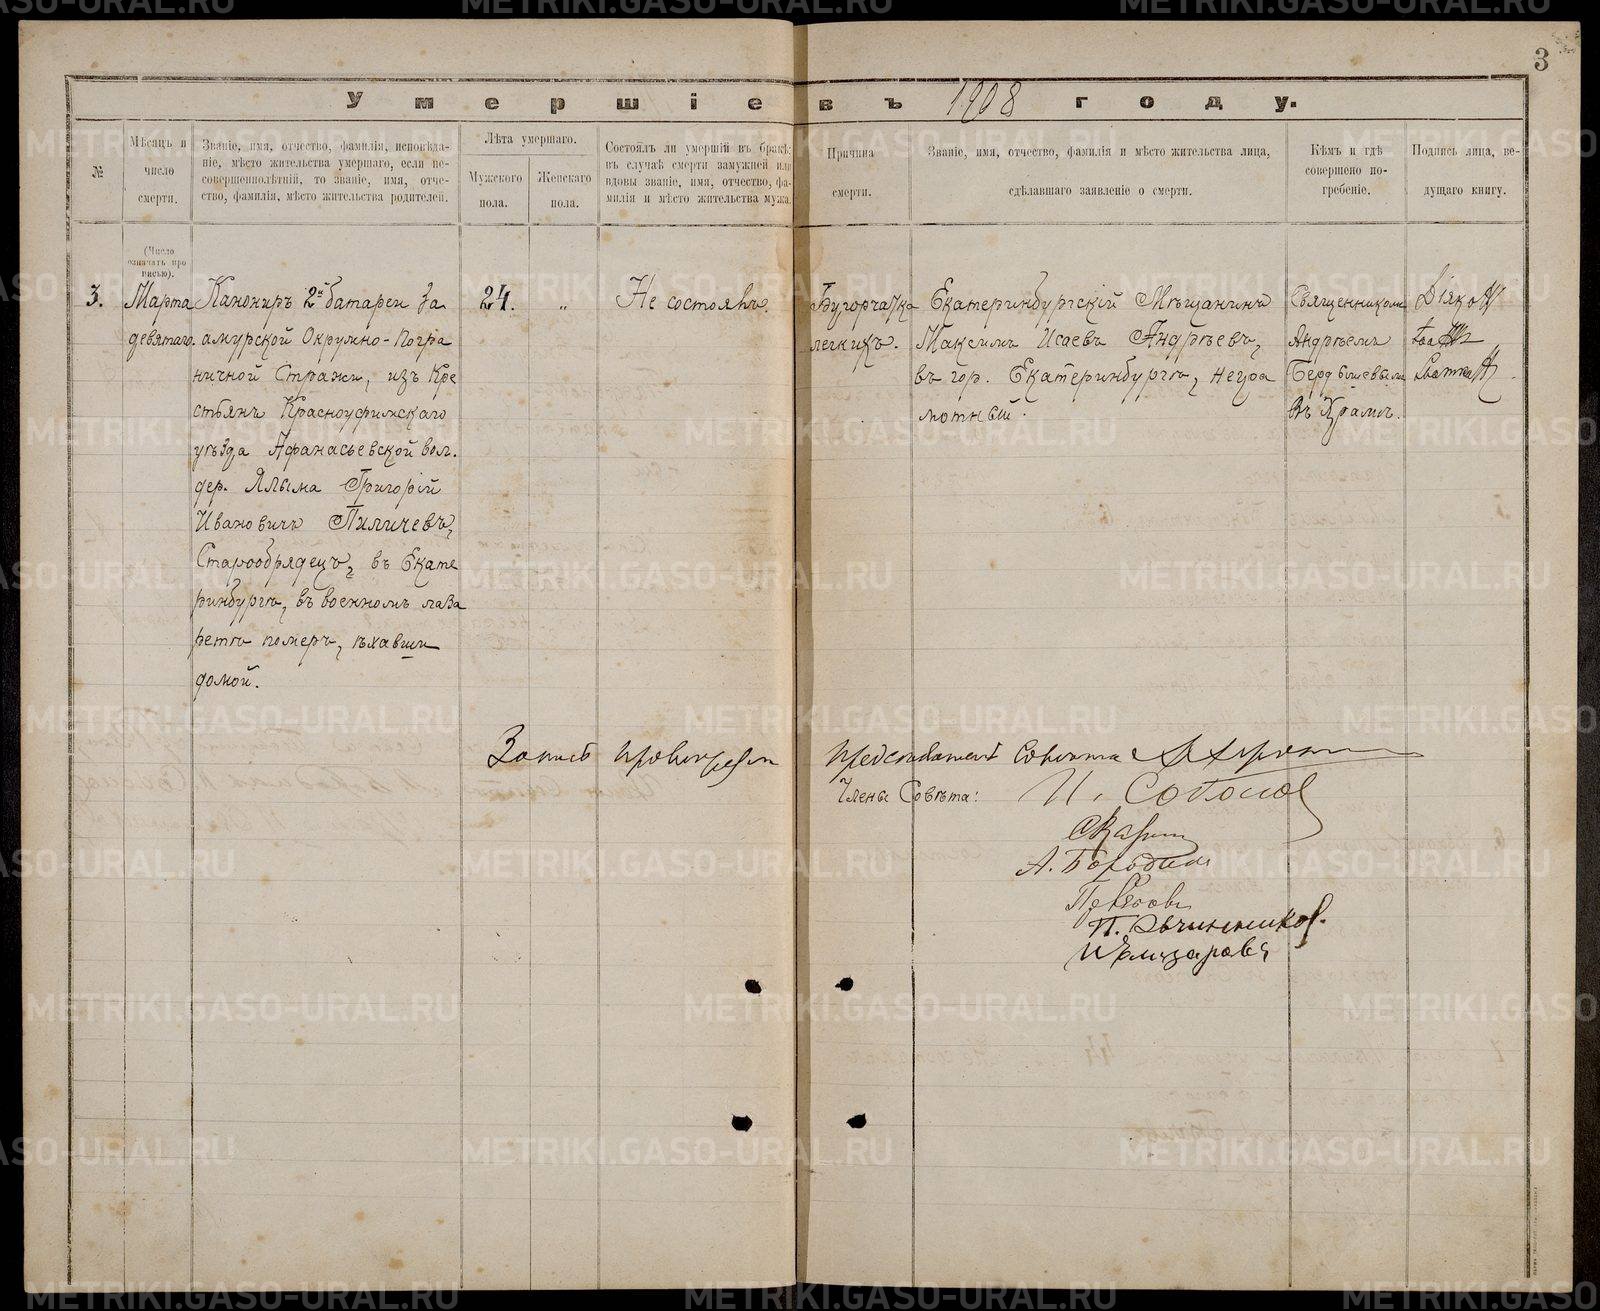 3
Умершіе въ 1908 году.
№
Мѣсяцъ и
число
смерти.
Званіе, имя, отчество, фамилія, исповѣда-
ніе, мѣсто жительства умершаго, если не-
совершеннолѣтній, то званіе, имя, отче-
ство, фамилія, мѣсто жительства родителей.
Лѣта умершаго.
Мужского
пола.
Женскаго
пола.
Состоялъ ли умершій въ бракѣ;
въ случаѣ смерти замужней или
вдовы званіе, имя, отчество, фа-
милія и мѣсто жительства мужа.
Причина
смерти.
Званіе, имя, отчество, фамилія и мѣсто жительства лица,
сдѣлавшаго заявленіе о смерти.
Кѣмъ и гдѣ
совершено по-
гребеніе.
Подпись лица, ве-
дущаго книгу.
(Число
означать про
писью).
3.
Марта
девятаго.
Канониръ 2й батареи За
амурской Окружно-Погра
ничной Стражи, изъ Кре
стьянъ Красноуфимскаго
уѣзда Афанасьевской вол.
дер. Ялыма Григорій
Ивановичъ Пиличевъ,
Старообрядецъ, въ Екате
ринбургѣ, въ военномъ лаза
ретѣ померъ, ѣхавши
домой.
24.
„
Не состоялъ.
Бугорчатка
легкихъ.
Екатеринбургскій Мѣщанинъ
Максимъ Исаевъ Андреевъ,
въ гор. Екатеринбургѣ, негра
мотный.
Священникомъ
Андреемъ
въ Храмѣ.
Запись провѣряли
Предсѣдатель Совѣта
Члены Совѣта:
А. Бородинъ
П. Овчинниковъ.